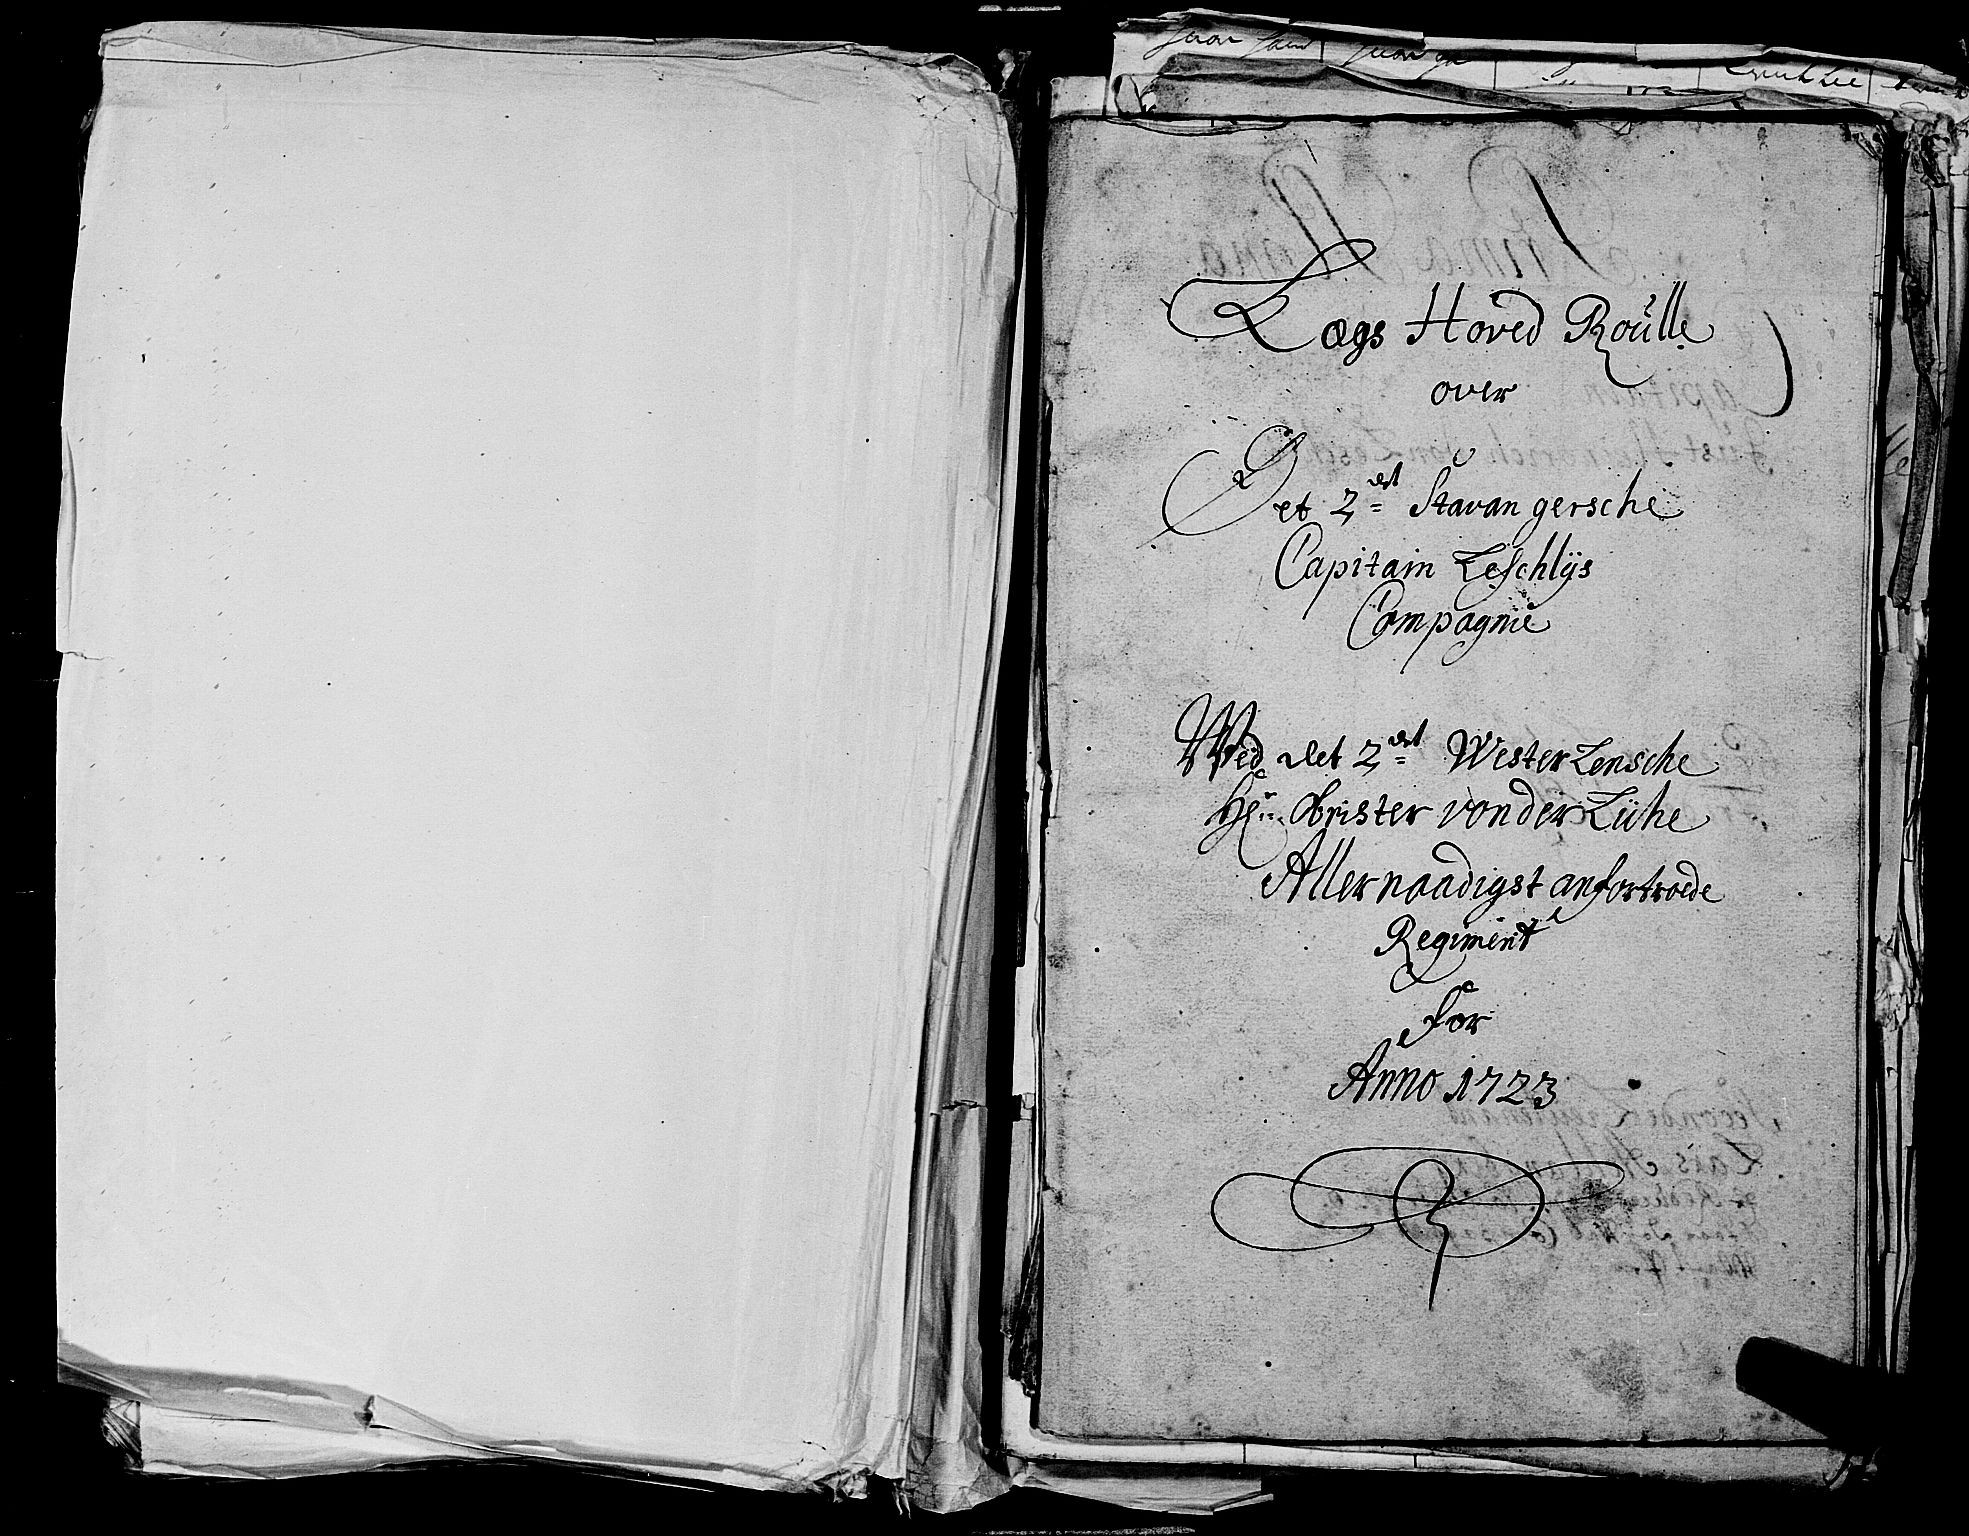 Lægs Hoved Roulle
over
Det 2det Stavangersche
Capitain Leschlÿs
Compagnie
Wed det 2det Wester Lensche
Hr: Obrister von der Lühe
Allernaadigst anfortroede
Regiment
for
Anno 1723